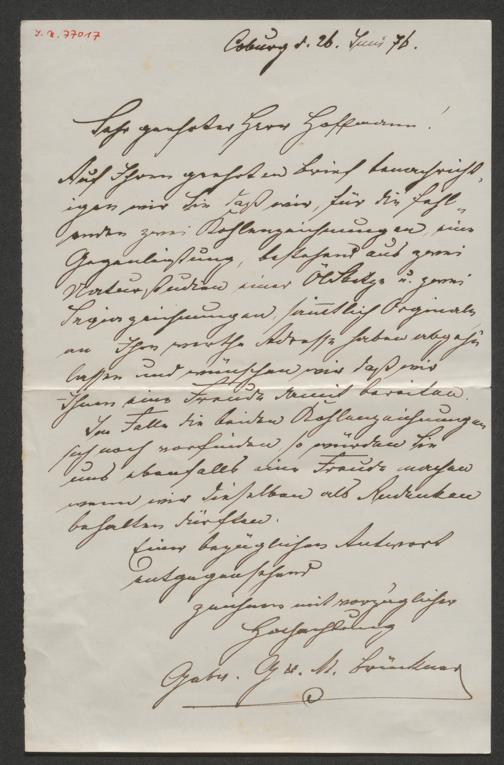 J. N. 77017
Coburg d. 26. Juni 76.
Sehr geehrter Herr Hoffmann!
Auf Ihren geehrten Brief benachricht„
igen wir Sie daß wir, für die fehl„
enden zwei Kohlenzeichnungen, eine
Gegenleistung, bestehend aus zwei
Naturstudien einer Ölskitze u. zwei
Sepiazeichnungen, sämtlich Orginale,
an Ihre werthe Adresse haben abgehn
lassen und wünschen wir daß wir
Ihnen eine Freude damit bereiten.
Im Falle die beiden Kohlenzeichnungen
sich noch vorfinden so würden Sie
uns ebenfalls eine Freude machen
wenn wir dieselben als Andenken
behalten dürften.
Einer bezüglichen Antwort
entgegensehend
zeichnen mit vorzüglicher
Hochachtung
Gebr. G. u. M. Brückner